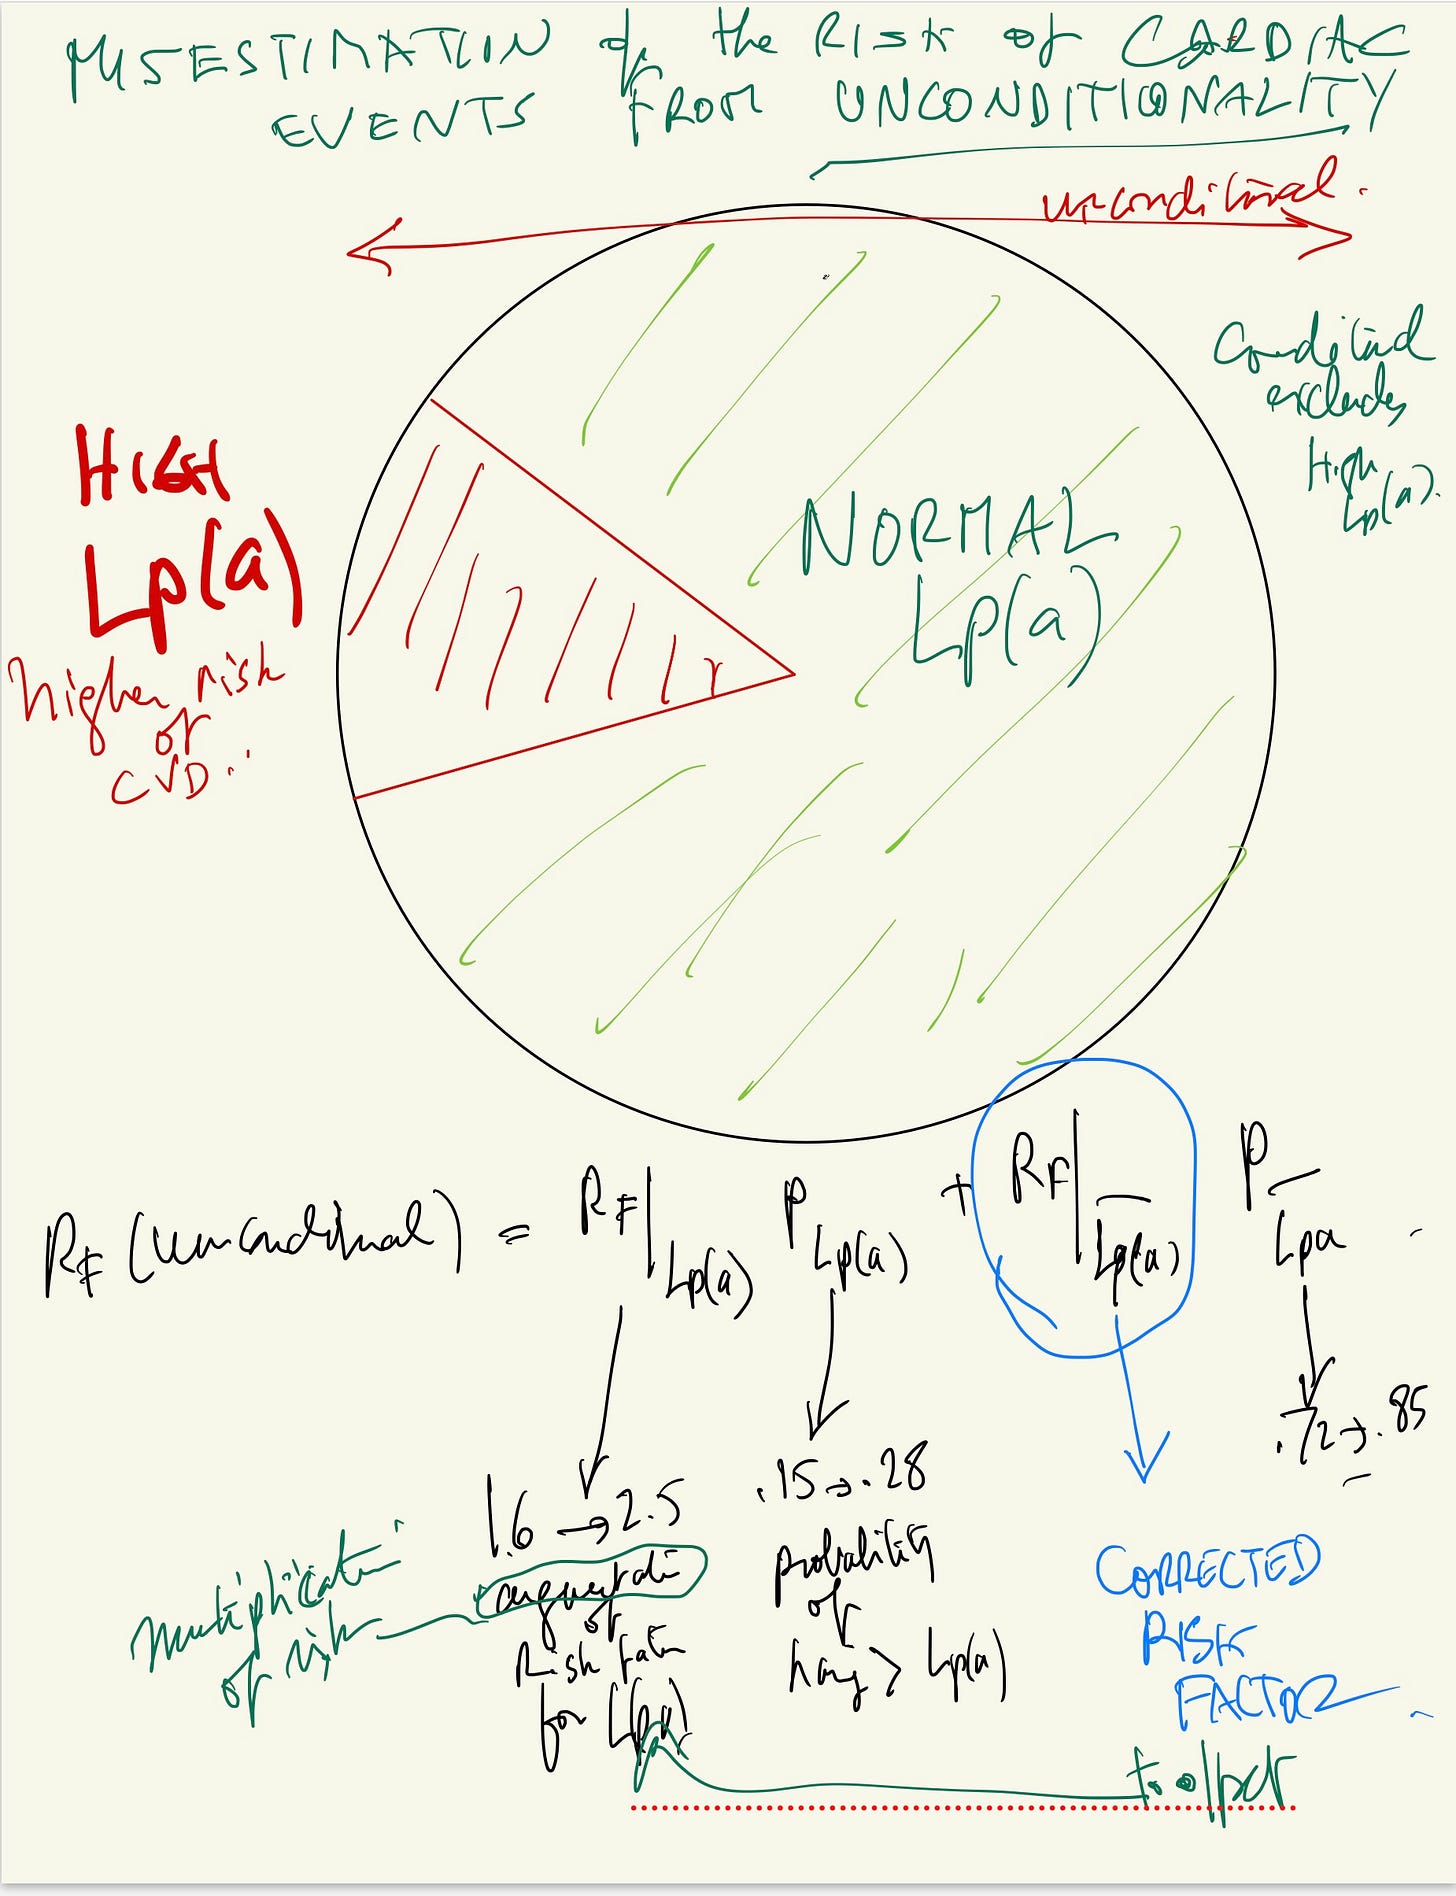 MISESTIMATION of the RISK of CARDIAC
EVENTS FROM UNCONDITIONALITY
unconditional.
Conditional
excludes
High
Lp(a).
HIGH
Lp(a)
higher risk
of
CVD..
NORMAL
Lp(a)
RF (unconditional) = RF|Lp(a) P Lp(a) + RF|L̅p̅(̅a̅)̅ P L̅p̅a̅
1.6 → 2.5
augmentation
of
Risk factor
for Lp(a)
multiplication
of risk
.15 → .28
probability
of
having > Lp(a)
.72 → .85
CORRECTED
RISK
FACTOR
to offset